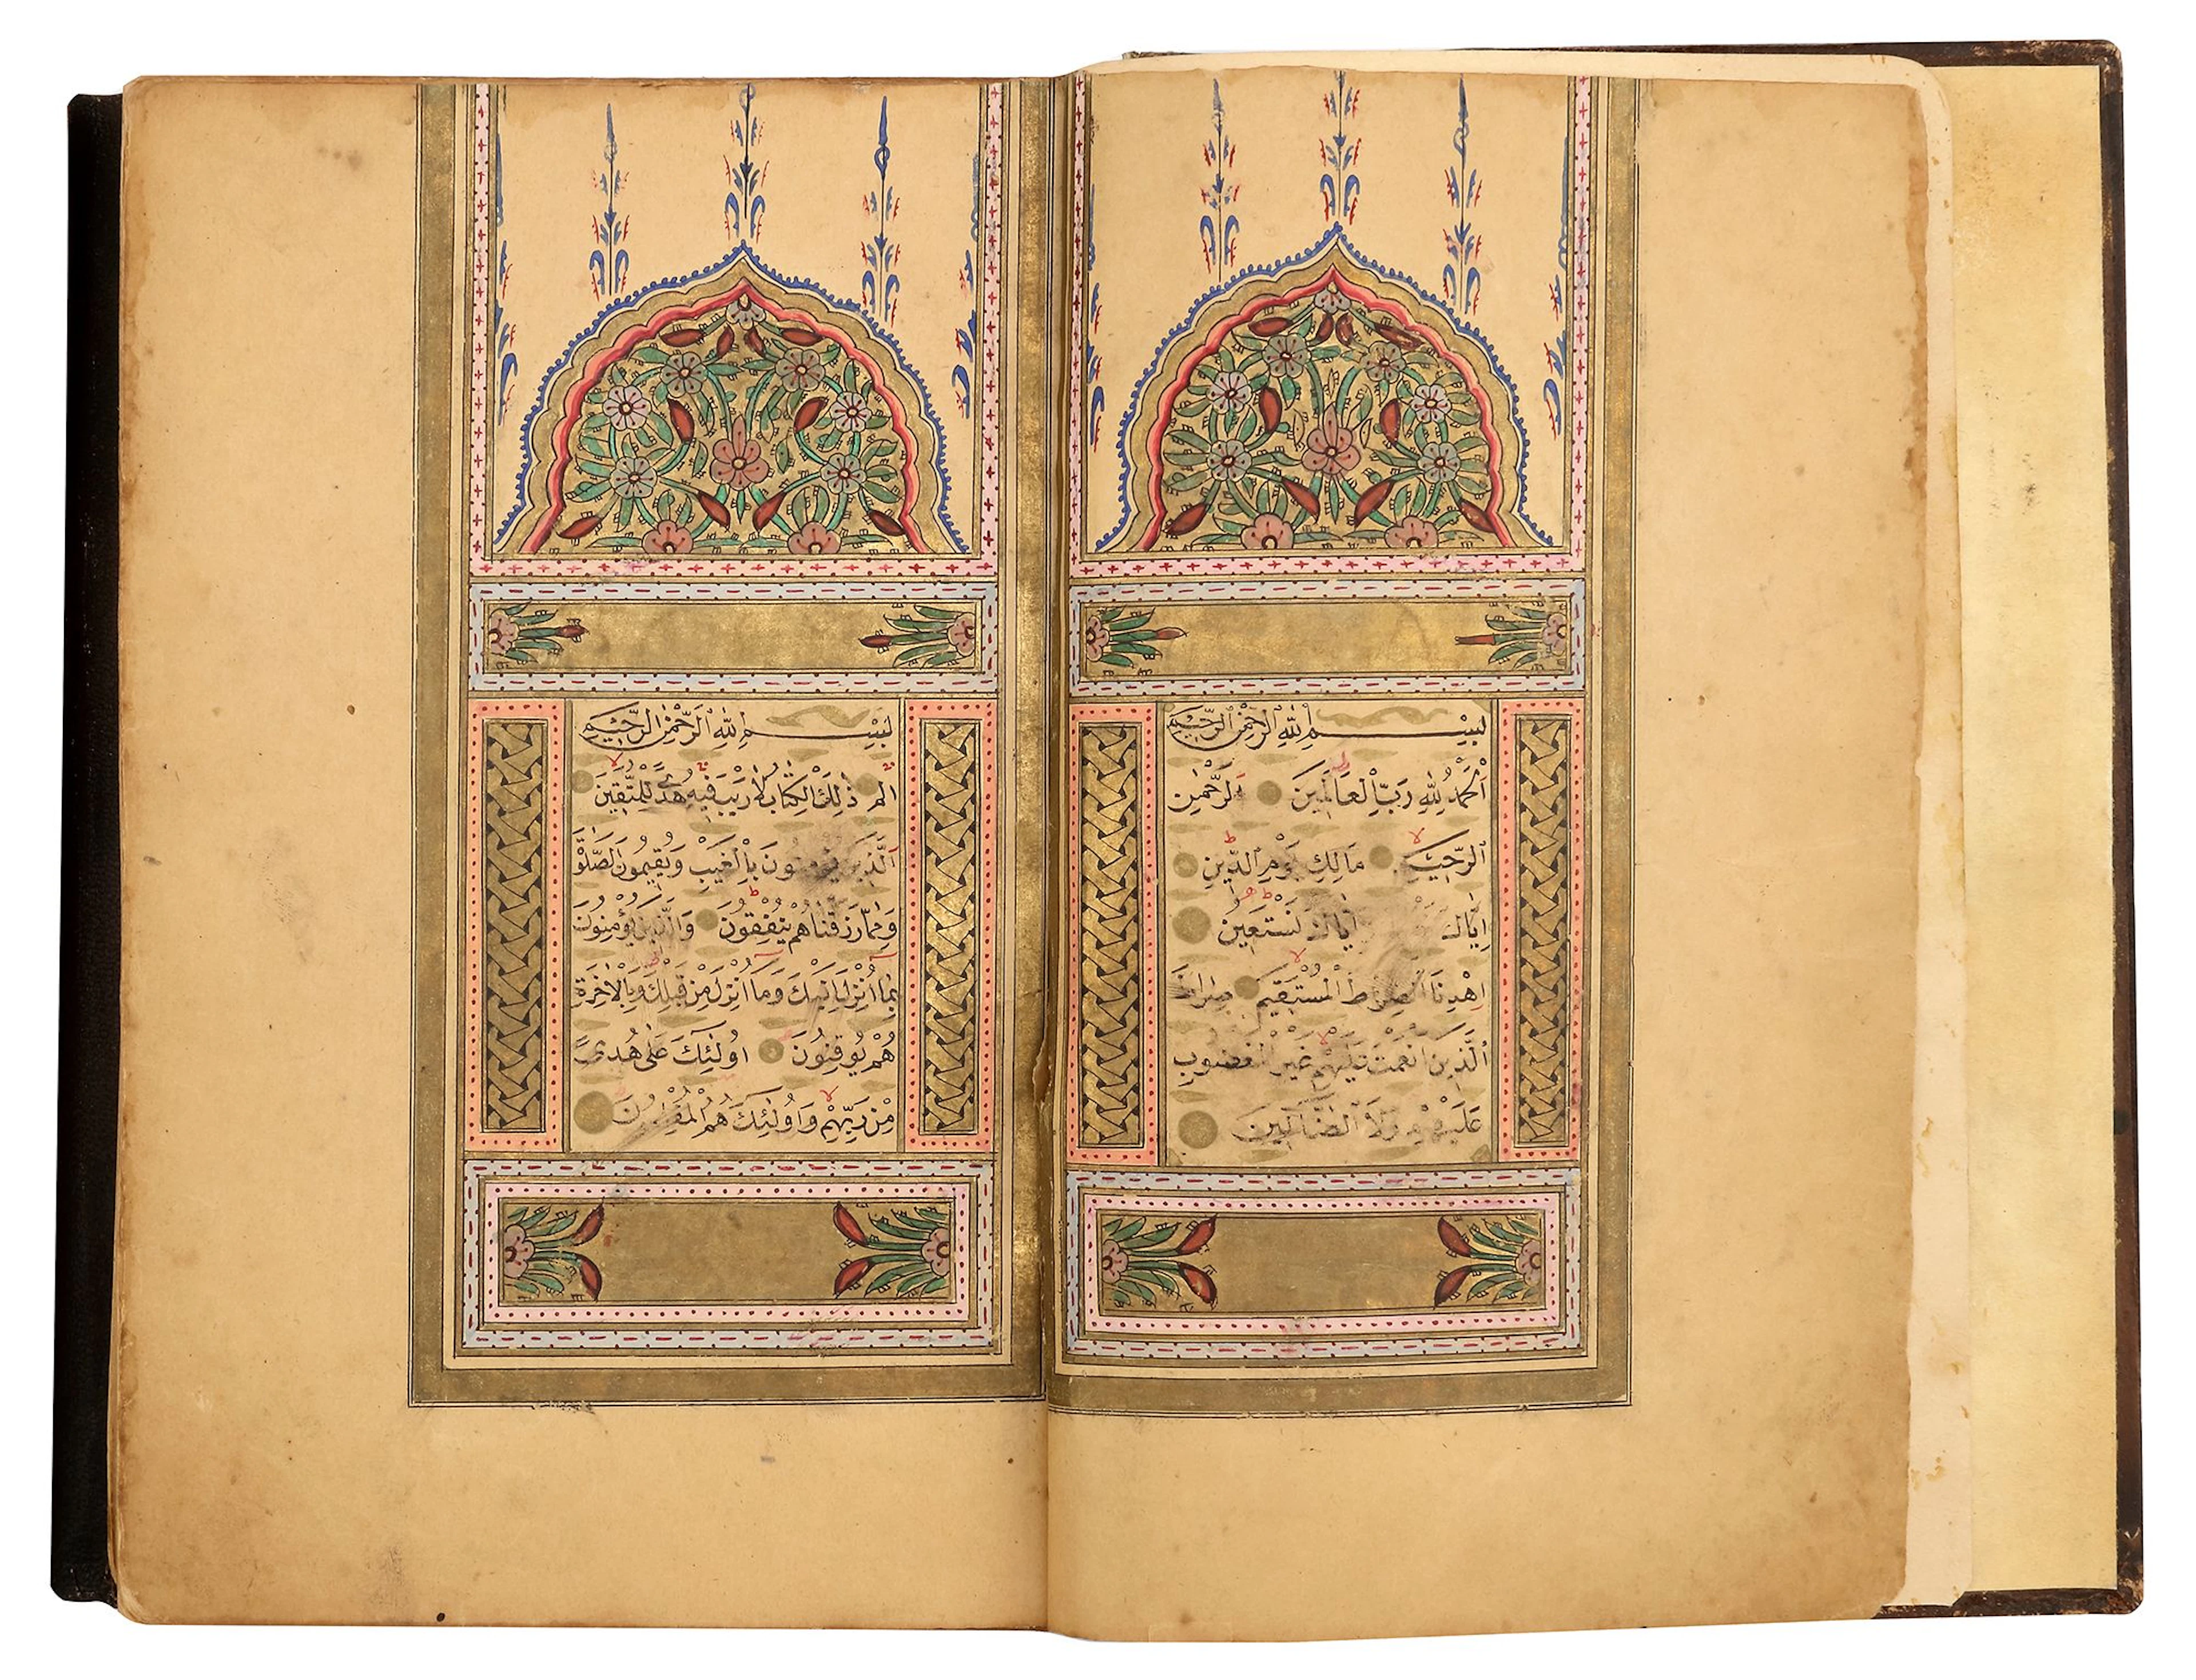 بِسْمِ اللهِ الرَّحْمٰنِ الرَّحِيمِ
اَلْحَمْدُ لِلّٰهِ رَبِّ الْعَالَمِينَ الرَّحْمٰنِ
الرَّحِيمِ مَالِكِ يَوْمِ الدِّينِ
اِيَّاكَ اِيَّاكَ نَسْتَعِينُ
اِهْدِنَا الصِّرَاطَ الْمُسْتَقِيمَ صِرَاطَ
الَّذِينَ اَنْعَمْتَ عَلَيْهِمْ غَيْرِ الْمَغْضُوبِ
عَلَيْهِمْ وَلَا الضَّالِّينَ
بِسْمِ اللهِ الرَّحْمٰنِ الرَّحِيمِ
الم ذٰلِكَ الْكِتَابُ لَا رَيْبَ فِيهِ هُدًى لِلْمُتَّقِينَ
اَلَّذِينَ يُؤْمِنُونَ بِالْغَيْبِ وَيُقِيمُونَ الصَّلٰوةَ
وَمِمَّا رَزَقْنَاهُمْ يُنْفِقُونَ وَالَّذِينَ يُؤْمِنُونَ
بِمَا اُنْزِلَ اِلَيْكَ وَمَا اُنْزِلَ مِنْ قَبْلِكَ وَبِالْاٰخِرَةِ
هُمْ يُوقِنُونَ اُولٰئِكَ عَلٰى هُدًى
مِنْ رَبِّهِمْ وَاُولٰئِكَ هُمُ الْمُفْلِحُونَ